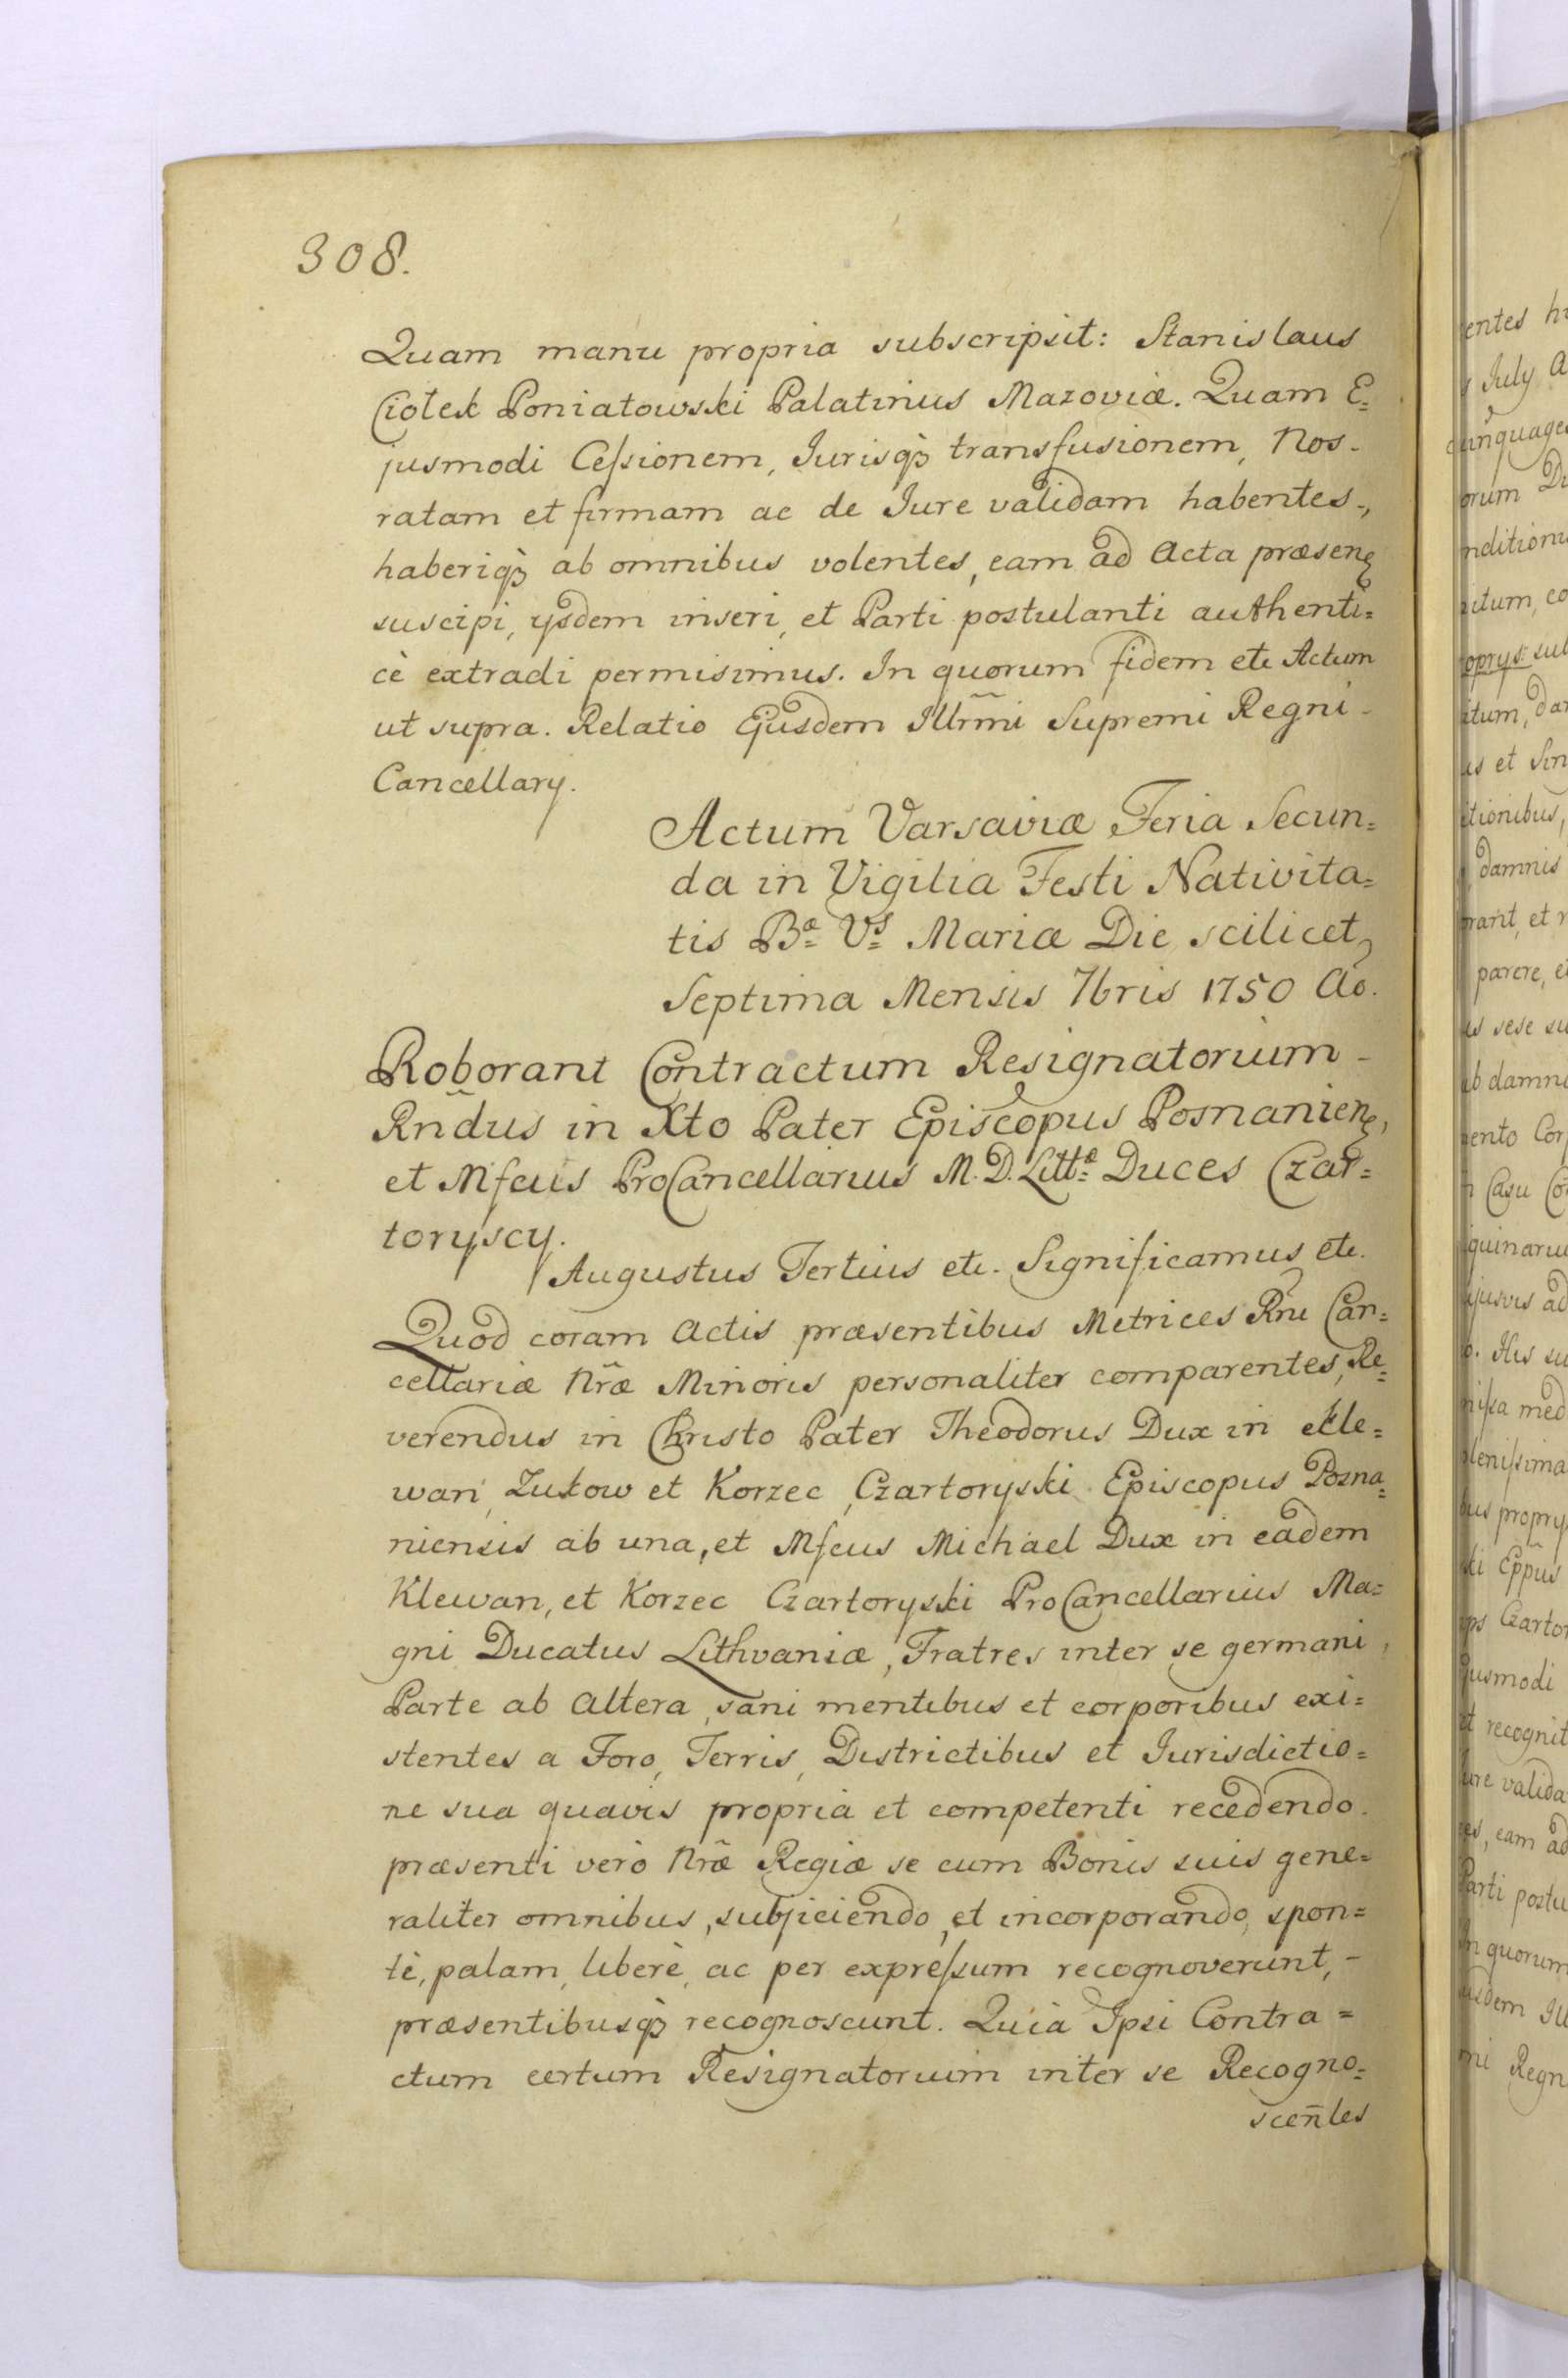 308.
Quam manu propria subscripsit: Stanislaus
Ciolek Poniatowski Palatinus Mazoviæ. Quam E=
jusmodi Ceſsionem, Jurisqꝫ transfusionem, Nos-
ratam et firmam ac de Jure validam habentes-,
haberiqꝫ ab omnibus volentes, eam ad Acta præsenꝭ
suscipi, ysdem inseri, et Parti postulanti authenti=
cè extradi permisimus. In quorum fidem etc Actum
ut supra. Relatio Ejusdem Illrm̃i Supremi Regni-
Cancellary.
Actum Varsaviæ Feria Secun=
da in Vigilia Festi Nativita=
tis Bæ Vs Mariæ Die scilicet
Septima Mensis 7bris 1750 Ao.
Roborant Contractum Resignatorium-
Rñdus in Xto Pater Episcopus Posnanienꝭ,
et Mfcus ProCancellarius M. D. Littæ Duces Czar=
toryscy.
Augustus Tertius etc. Significamus etc.
Quod coram Actis præsentibus Metrices Rni Can=
cellariæ Nræ̃ Minoris personaliter comparentes, Re=
verendus in Christo Pater Theodorus Dux in Kle=
wan, Zukow et Korzec, Czartoryski Episcopus Pozna=
niensis ab una, et Mfcus Michael Dux in eadem
Klewan, et Korzec Czartoryski ProCancellarius Ma=
gni Ducatus Lithvaniæ, Fratres inter se germani,
Parte ab altera, sani mentibus et corporibus exi=
stentes a Foro, Terris, Districtibus et Jurisdictio=
ne sua quavis propria et competenti recedendo.
præsenti verò Nræ̃ Regiæ se cum Bonis suis gene=
raliter omnibus, subjiciendo, et incorporando, spon=
tè, palam, liberè, ac per expreſsum recognoverunt,-
præsentibusqꝫ recognoscunt. Quia Ipsi Contra=
ctum certum Resignatorium inter se Recogno=
scen̄tes